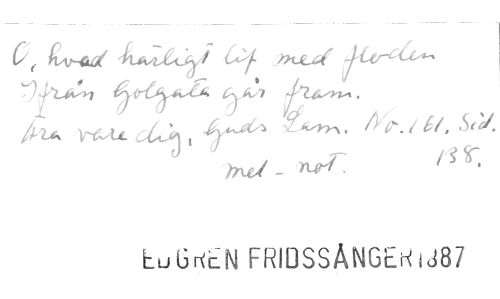 O, hvad härligt lif med floden
Ifrån Golgata går fram.
Ära vare dig, Guds Lam. No. 161. Sid.
mel-not. 138.
EDGREN FRIDSSÅNGER 1887